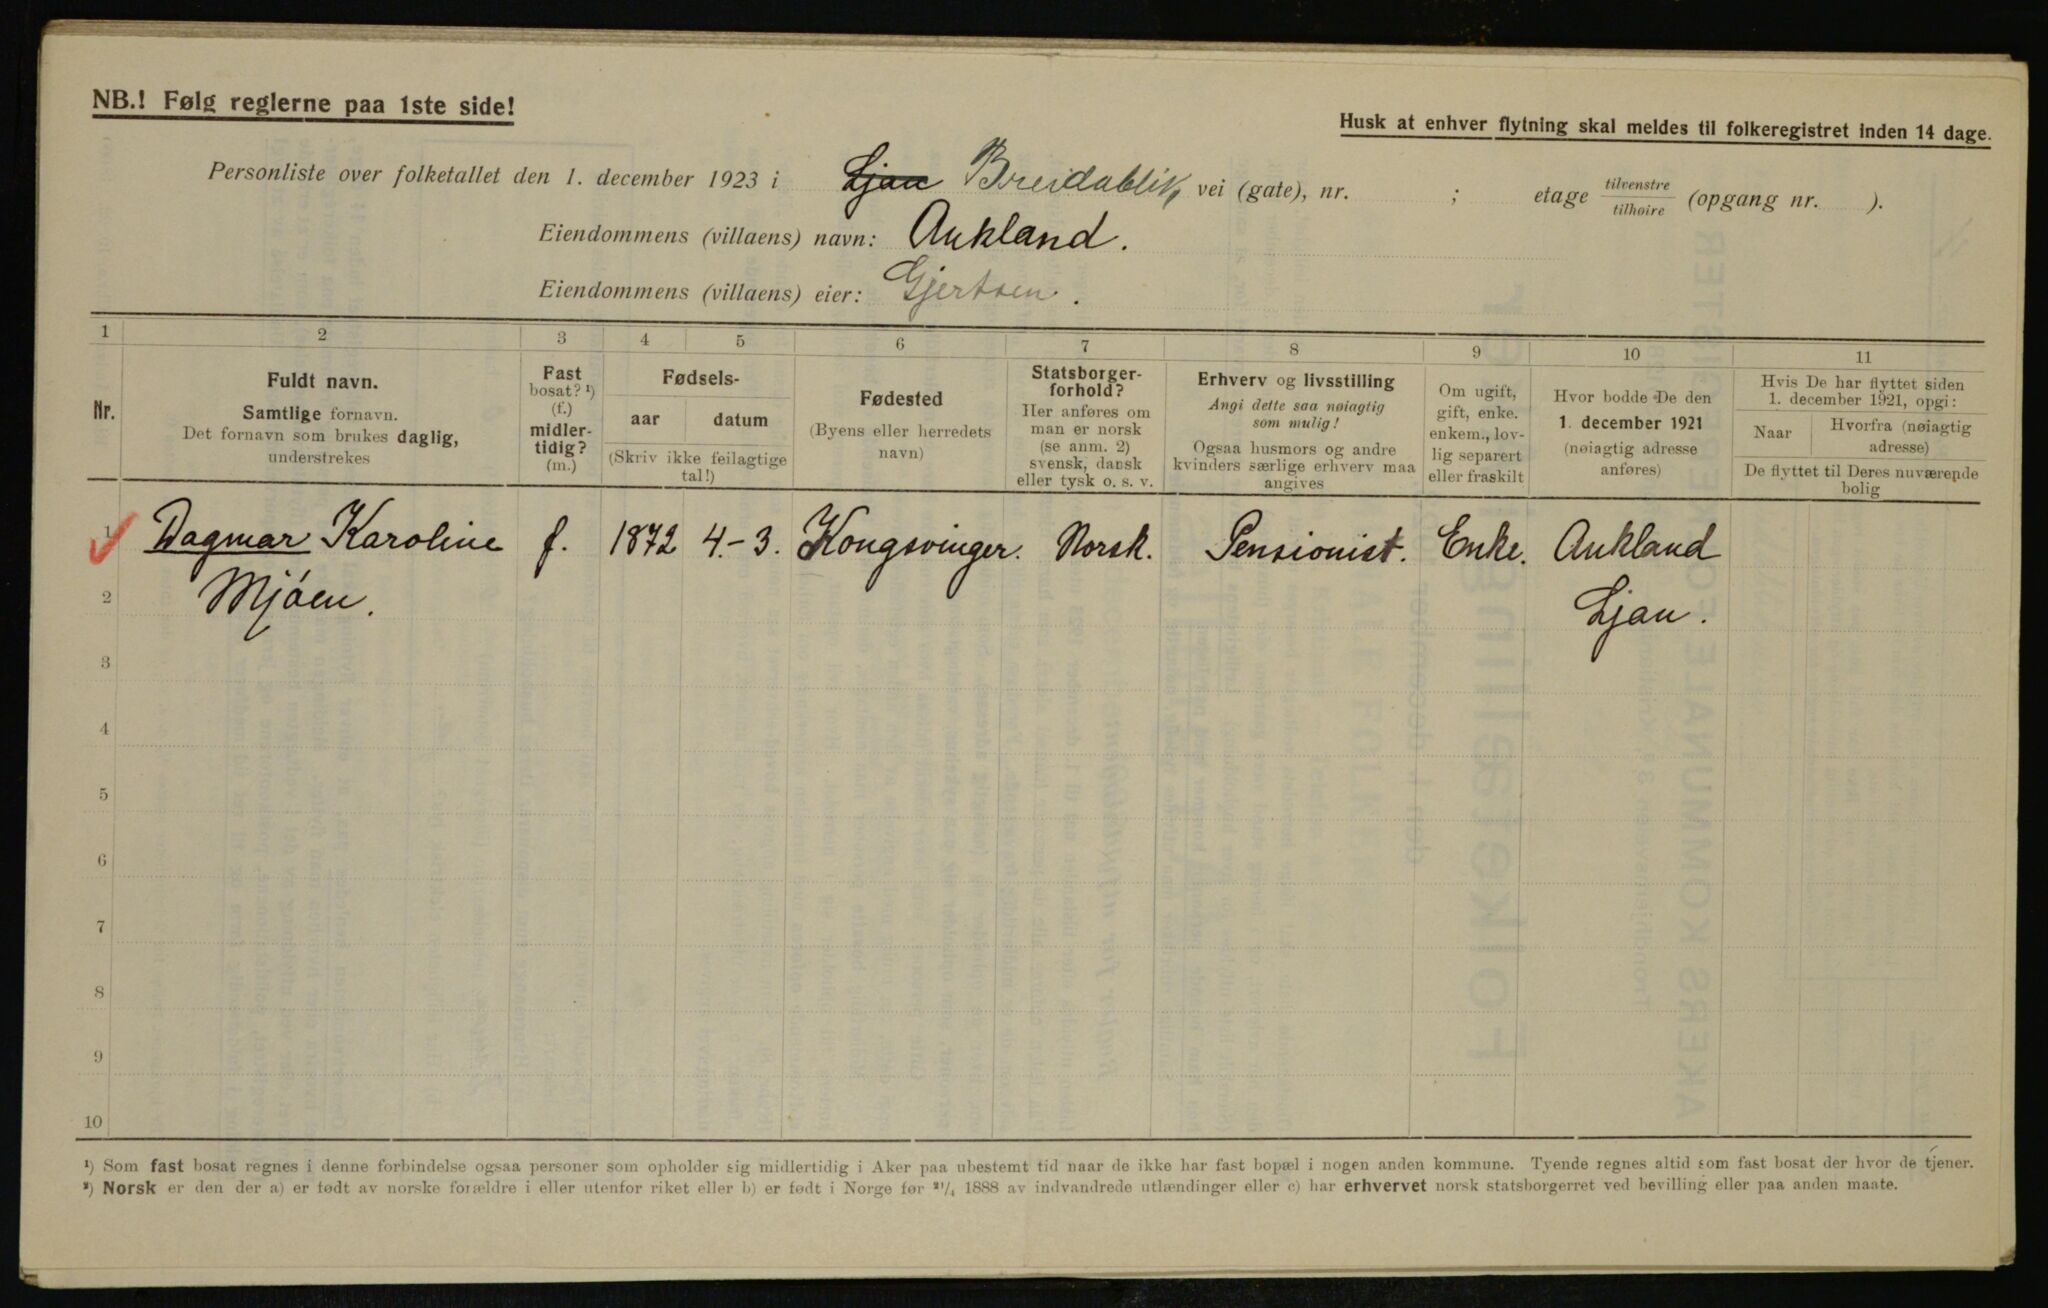 NB.! Følg reglerne paa 1ste side!
Husk at enhver flytning skal meldes til folkeregistret inden 14 dage.
Personliste over folketallet den 1. december 1923 i Ljan Breidablik vei (gate), nr. ; etage tilvenstre tilhøire (opgang nr. ).
Eiendommens (villaens) navn: Aukland.
Eiendommens (villaens) eier: Gjertsen.
1 2 3 4 5 6 7 8 9 10 11
Nr.
Fuldt navn.
Samtlige fornavn.
Det fornavn som brukes daglig,
understrekes
Fast
bosat? ¹)
(f.)
midler-
tidig?
(m.)
Fødsels-
aar datum
(Skriv ikke feilagtige
tal!)
Fødested
(Byens eller herredets
navn)
Statsborger-
forhold?
Her anføres om
man er norsk
(se anm. 2)
svensk, dansk
eller tysk o. s. v.
Erhverv og livsstilling
Angi dette saa nøiagtig
som mulig!
Ogsaa husmors og andre
kvinders særlige erhverv maa
angives
Om ugift,
gift, enke.
enkem., lov-
lig separert
eller fraskilt
Hvor bodde De den
1. december 1921
(nøiagtig adresse
anføres)
Hvis De har flyttet siden
1. december 1921, opgi:
Naar
Hvorfra (nøiagtig
adresse)
De flyttet til Deres nuværende
bolig
1 Dagmar Karoline f. 1872 4.-3. Kongsvinger. Norsk. Pensionist. Enke. Aukland
2 Mjöen. Ljan.
3
4
5
6
7
8
9
10
¹) Som fast bosat regnes i denne forbindelse ogsaa personer som opholder sig midlertidig i Aker paa ubestemt tid naar de ikke har fast bopæl i nogen anden kommune. Tyende regnes altid som fast bosat der hvor de tjener.
²) Norsk er den der a) er født av norske forældre i eller utenfor riket eller b) er født i Norge før ²¹/₄ 1888 av indvandrede utlændinger eller c) har erhvervet norsk statsborgerret ved bevilling eller paa anden maate.